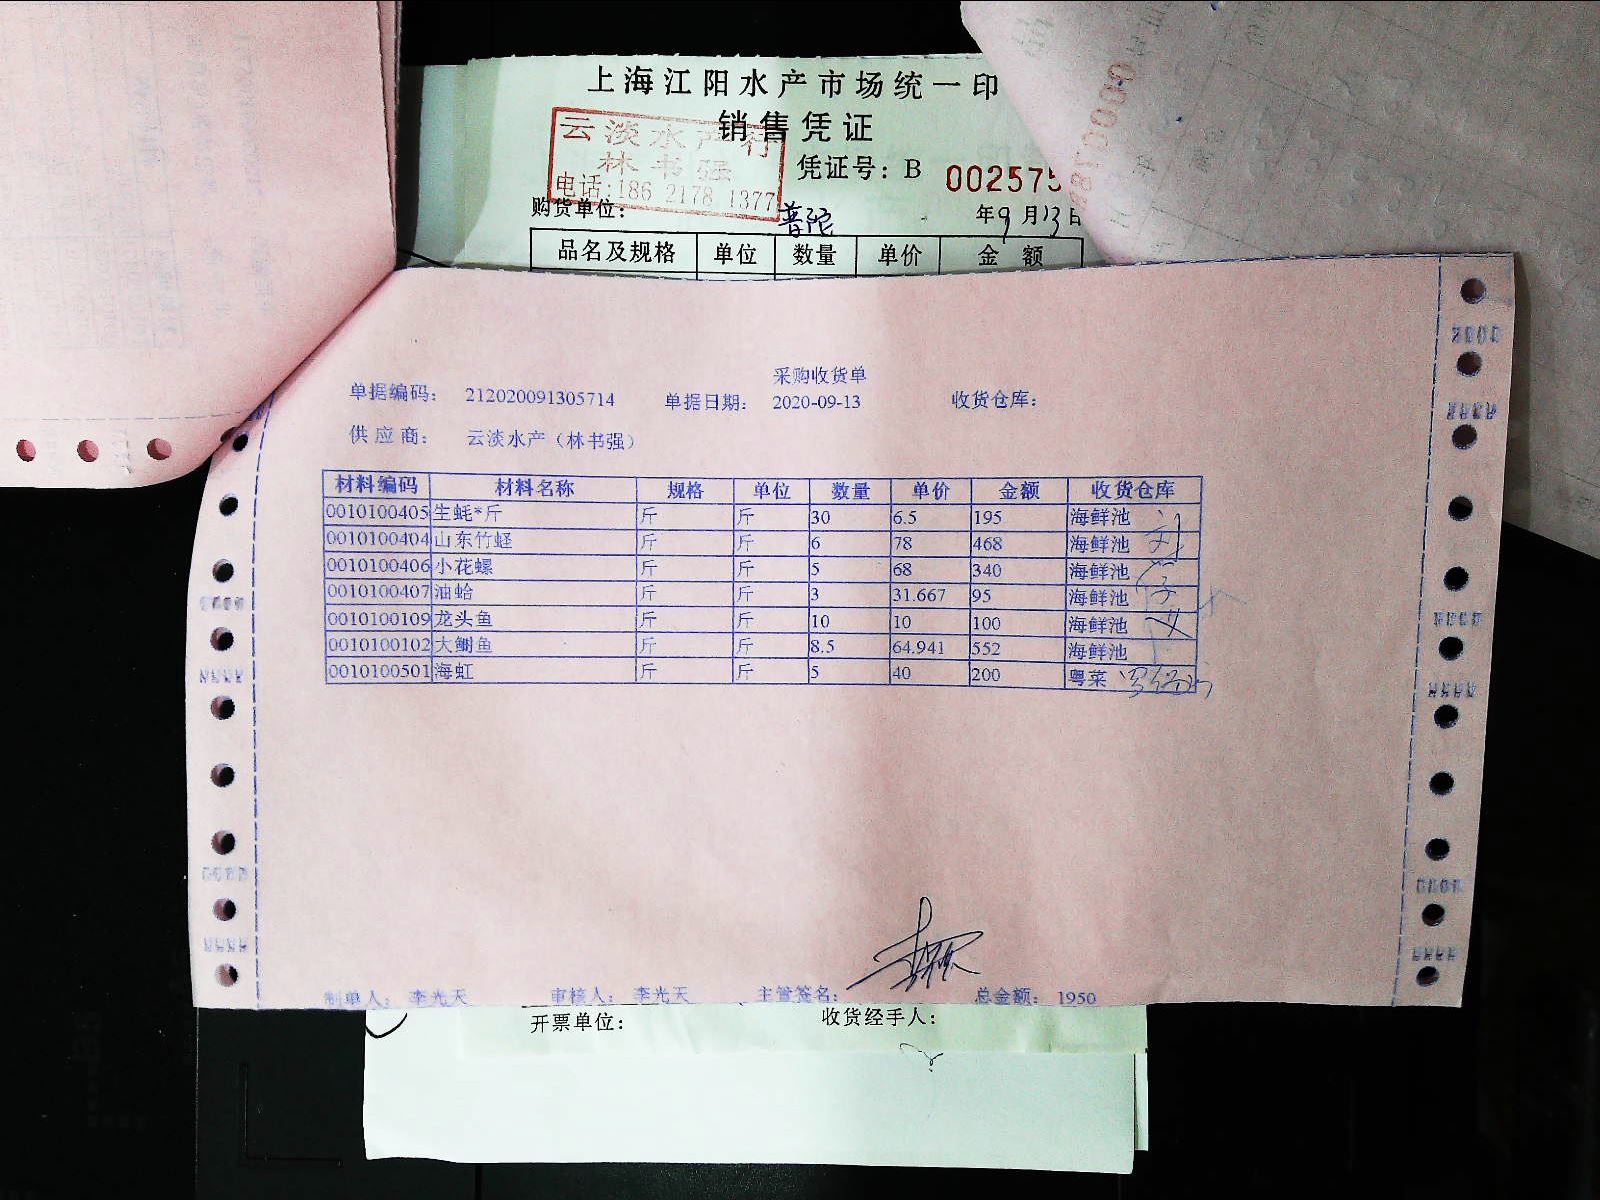 上海江阳水产市场统一印
销售凭证
云淡水产行
林书强
电话:186 2178 1377
凭证号: B 002575
购货单位: 普陀 年9月13日
品名及规格 单位 数量 单价 金额
采购收货单
单据编码: 212020091305714 单据日期: 2020-09-13 收货仓库:
供应商: 云淡水产（林书强）
材料编码 材料名称 规格 单位 数量 单价 金额 收货仓库
0010100405 生蚝*斤 斤 斤 30 6.5 195 海鲜池
0010100404 山东竹蛏 斤 斤 6 78 468 海鲜池
0010100406 小花螺 斤 斤 5 68 340 海鲜池
0010100407 油蛤 斤 斤 3 31.667 95 海鲜池
0010100109 龙头鱼 斤 斤 10 10 100 海鲜池
0010100102 大鲥鱼 斤 斤 8.5 64.941 552 海鲜池
0010100501 海虹 斤 斤 5 40 200 粤菜
制单人: 李光天 审核人: 李光天 主管签名: 总金额: 1950
开票单位: 收货经手人: